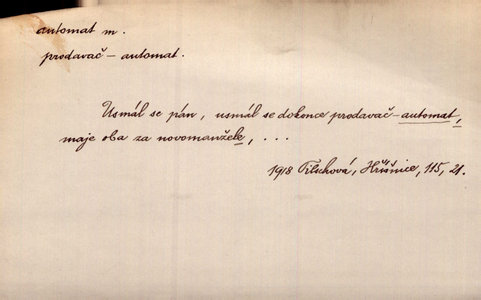 automat m.
prodavač – automat.
Usmál se pán, usmál se dokonce prodavač-automat,
maje oba za novomanžele, ...
1918 Tilschová, Hříšnice, 115, 21.